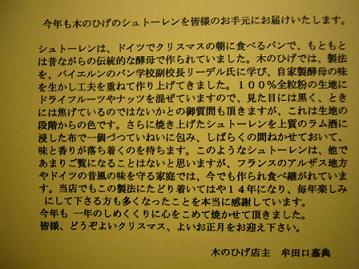 今年も木のひげのシュトーレンを皆様のお手元にお届けいたします。
シュトーレンは、ドイツでクリスマスの朝に食べるパンで、もともと
は昔ながらの伝統的な酵母で作られていました。木のひげでは、製法
を、バイエルンのパン学校副校長リーデル氏に学び、自家製酵母の味
を生かし工夫を重ねて作り上げてきました。100％全粒粉の生地に
ドライフルーツやナッツを混ぜていますので、見た目には黒く、とき
には焦げているのではないかとの御質問も頂きますが、これは生地の
段階からの色です。さらに焼き上げたシュトーレンを上質のラム酒に
浸した布で一個づつていねいに包み、しばらくの間ねかせておいて、
味と香りが落ち着くのを待ちます。このようなシュトーレンは、他で
あまりご覧になることはないと思いますが、フランスのアルザス地方
やドイツの昔風の味を守る家庭では、今でも作られ食べ継がれていま
す。当店でもこの製法にたどり着いてはや14年になり、毎年楽しみ
にして下さる方も多くなったことを本当に感謝しています。
今年も 一年のしめくくりに心をこめて焼かせて頂きました。
皆様、どうぞよいクリスマス、よいお正月をお迎え下さい。
木のひげ店主 牟田口嘉典